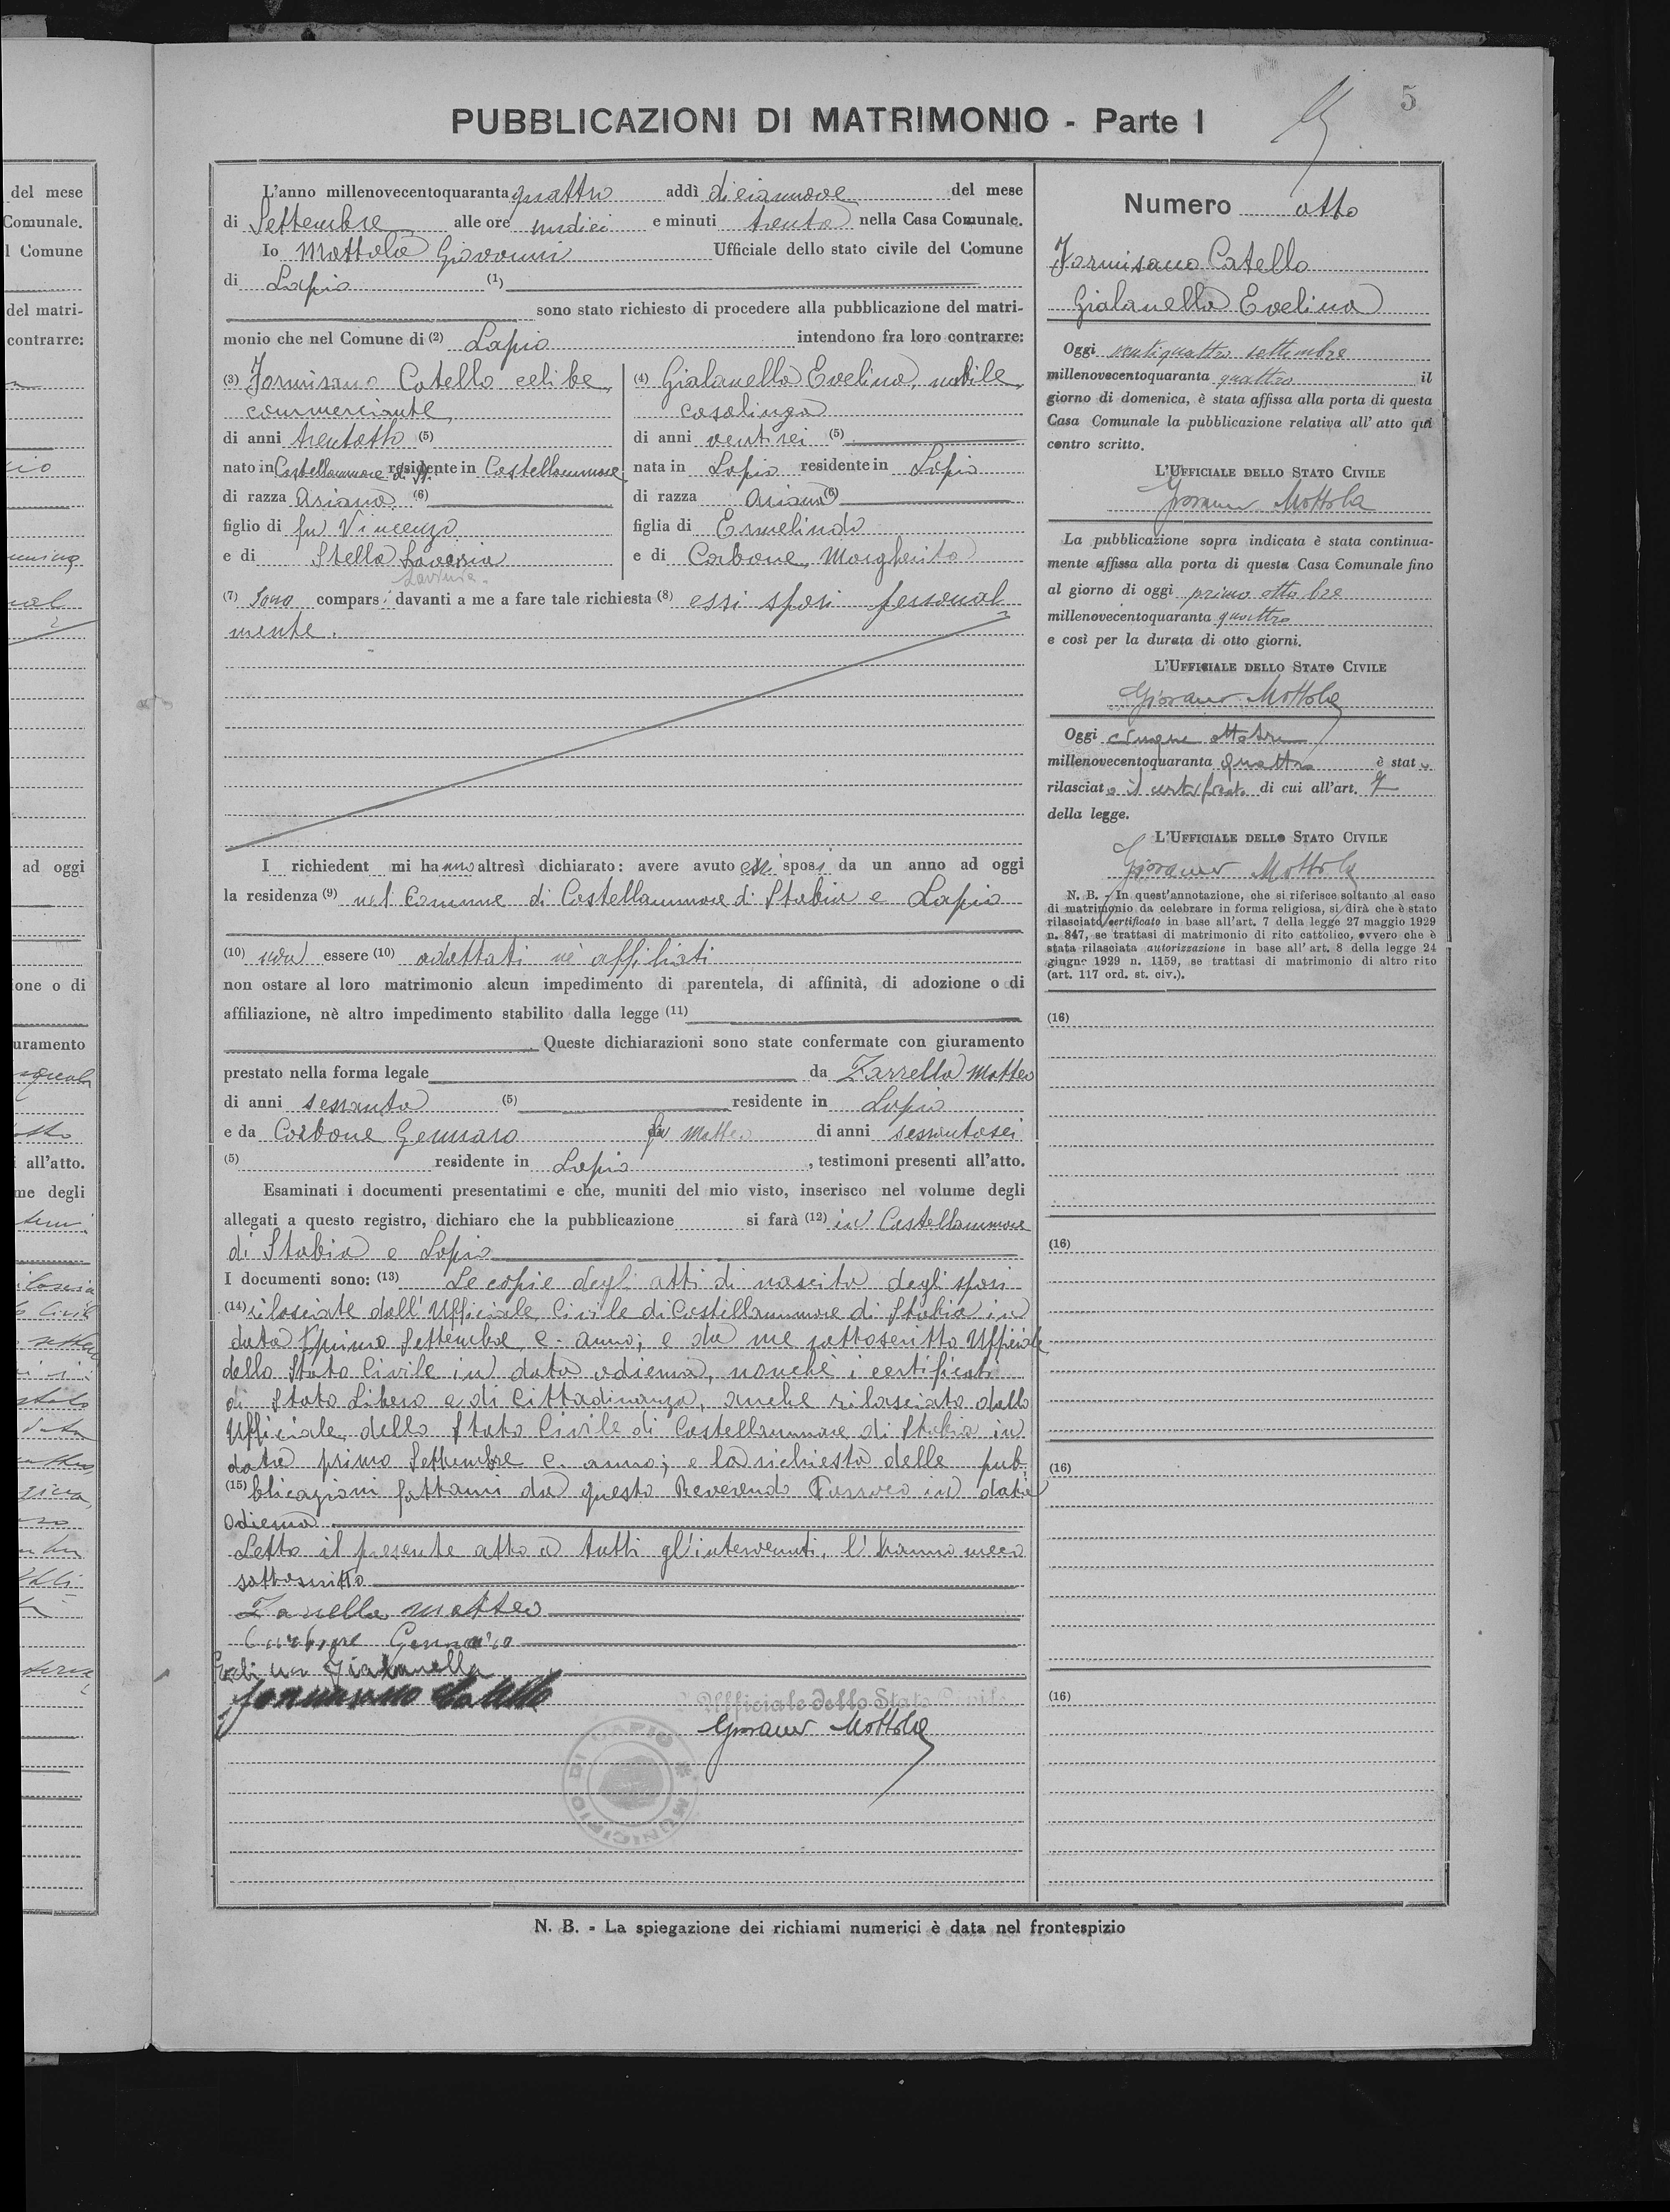 5
PUBBLICAZIONI DI MATRIMONIO - Parte I
L'anno millenovecentoquaranta quattro addì diciannove del mese
di Settembre alle ore undici e minuti trenta nella Casa Comunale.
Io Mottola Giovanni Ufficiale dello stato civile del Comune
di Lapio (1)
sono stato richiesto di procedere alla pubblicazione del matri-
monio che nel Comune di (2) Lapio intendono fra loro contrarre:
(3) Formisano Catello celibe,
commerciante,
di anni trentotto (5)
nato in Castellammare di St. residente in Castellammare
di razza ariana (6)
figlio di fu Vincenzo
e di Stella Saveria
(4) Gialanella Evelina, nubile,
casalinga
di anni ventisei (5)
nata in Lapio residente in Lapio
di razza ariana (6)
figlia di Ermelindo
e di Carbone Margherita
(7) Sono compars i davanti a me a fare tale richiesta (8) essi sposi personal
mente.
I richiedent mi ha nno altresì dichiarato: avere avuto essi sposi da un anno ad oggi
la residenza (9) nel Comune di Castellammare di Stabia e Lapio
(10) non essere (10) adottati nè affiliati
non ostare al loro matrimonio alcun impedimento di parentela, di affinità, di adozione o di
affiliazione, nè altro impedimento stabilito dalla legge (11)
Queste dichiarazioni sono state confermate con giuramento
prestato nella forma legale da Zarrella Matteo
di anni sessanta (5) residente in Lapio
e da Carbone Gennaro fu Matteo di anni sessantasei
(5) residente in Lapio, testimoni presenti all'atto.
Esaminati i documenti presentatimi e che, muniti del mio visto, inserisco nel volume degli
allegati a questo registro, dichiaro che la pubblicazione si farà (12) in Castellammare
di Stabia e Lapio
I documenti sono: (13) Le copie degli atti di nascita degli sposi
(14) rilasciate dall'Ufficiale Civile di Castellammare di Stabia in
data primo Settembre c. anno; e da me sottoscritto Ufficiale
dello Stato Civile in data odierna, nonchè i certificati
di Stato Libero e di Cittadinanza, anche rilasciato dallo
Ufficiale dello Stato Civile di Castellammare di Stabia in
data primo Settembre c. anno; e la richiesta delle pub-
(15) blicazioni fattami da questo Reverendo Parroco in data
odierna
Letto il presente atto a tutti gl'intervenuti, l'hanno meco
sottoscritto
Zarrella Matteo
Carbone Gennaro
Evelina Gialanella
Formisano Catello
L'Ufficiale dello Stato Civile
Giovanni Mottola
MUNICIPIO DI LAPIO
Numero otto
Formisano Catello
Gialanella Evelina
Oggi ventiquattro settembre
millenovecentoquaranta quattro il
giorno di domenica, è stata affissa alla porta di questa
Casa Comunale la pubblicazione relativa all'atto qui
contro scritto.
L'UFFICIALE DELLO STATO CIVILE
Giovanni Mottola
La pubblicazione sopra indicata è stata continua-
mente affissa alla porta di questa Casa Comunale fino
al giorno di oggi primo ottobre
millenovecentoquaranta quattro
e così per la durata di otto giorni.
L'UFFICIALE DELLO STATO CIVILE
Giovanni Mottola
Oggi cinque ottobre
millenovecentoquaranta quattro è stat o
rilasciat o il certificato di cui all'art. 7
della legge.
L'UFFICIALE DELLO STATO CIVILE
Giovanni Mottola
N. B. - In quest'annotazione, che si riferisce soltanto al caso
di matrimonio da celebrare in forma religiosa, si dirà che è stato
rilasciato certificato in base all'art. 7 della legge 27 maggio 1929
n. 847, se trattasi di matrimonio di rito cattolico, ovvero che è
stata rilasciata autorizzazione in base all'art. 8 della legge 24
giugno 1929 n. 1159, se trattasi di matrimonio di altro rito
(art. 117 ord. st. civ.).
(16)
(16)
(16)
(16)
N. B. - La spiegazione dei richiami numerici è data nel frontespizio
del mese
Comunale.
l Comune
del matri-
contrarre:
ad oggi
one o di
uramento
all'atto.
me degli